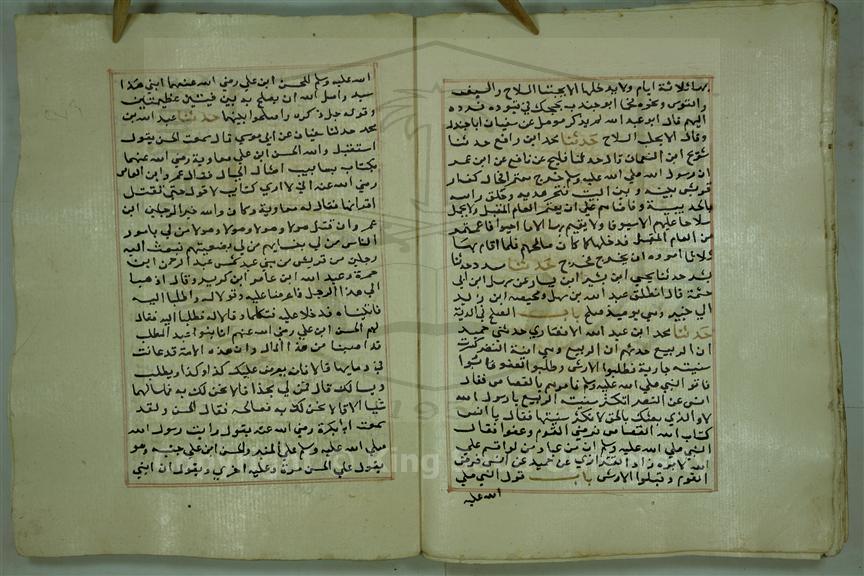 بها ثلاثة ايام ولا يدخلها الا بجلبان السلاح والسيف
والقوس ونحوه فجا ابو جندب يحجل في قيوده فرده
اليهم قال ابو عبد الله لم يذكر مومل عن سفيان ابا جندل
وقال الا بجلب السلاح حدثنا محمد ابن رافع حدثنا
شريح ابن النعمان قال حدثنا فليح عن نافع عن ابن عمر
ان رسول الله صلي الله عليه وسلم خرج معتمرا فحال كفار
قريش بينه وبين البيت فنحر هديه وحلق راسه
بالحديبية وقاضاهم علي ان يعتمر العام المقبل ولا يحمل
سلاحا عليهم الا سيوفا ولا يقيم بها الا ما احبوا فاعتمر
من العام المقبل فدخلها كما كان صالحهم فلما اقام بها
ثلاثا امروه ان يخرج فخرج حدثنا مسدد حدثنا
بشر حدثنا يحيي ابن بشير ابن يسار عن سهل ابن ابي
حثمة قال انطلق عبد الله بن سهل ومحيصه ابن زيد
الي خيبر وهي يوميذ صلح باب الصلح في الدية
حدثنا محمد ابن عبد الله الانصاري حدثني حميد
ان الربيع حدثهم ان الربيع وهي ابنة النضر كسرت
سنيته جارية فطلبوا الارش وطلبوا العفو فابوا
فاتو النبي صلي الله عليه وسلم فامرهم بالقصاص فقال
انس عن النضر اتكسر سنيته الربيع يا رسول الله
لا والذي بعثك بالحق لا تكسر سنيتها فقال يا انس
كتاب الله القصاص فرضي القوم وعفوا فقال
النبي صلي الله عليه وسلم ان من عباد من لو اقسم علي
الله لابره زاد الفزاري عن حميد عن انس فرضي
القوم وقبلوا الارش باب قول النبي صلي
الله عليه
الله عليه وسلم للحسن ابن علي رضي الله عنهما ابني هذا
سيد ولعل الله ان يصلح به بين فيتين عظيمتين
وقوله جل ذكره واصلحوا بينهما حدثنا عبد الله بن
محمد حدثنا سفيان عن ابي موسي قال سمعت الحسن يقول
استقبل والله الحسن ابن علي معاوية رضي الله عنهما
بكتايب امثال الجبال فقال عمرو ابن العاص
رضي الله عنه اني لا اري كتايب لا تولي حتي تقتل
اقرانها فقال له معاوية وكان والله خير الرجلين اين
عمر وان قتل هولا هولا وهولا وهولا من لي بامور
الناس من لي بنسايهم من لي بضيعتهم فبعث اليه
رجلين من قريش من بني عبد شمس عبد الرحمن ابن
حمرة وعبد الله ابن عامر ابن كريز وقال اذهبا
الي هذا الرجل فاعرضا عليه وقولا له واطلبا اليه
فاتياه فدخلا عليه فتكلما وقالا له فطلبا اليه فقال
لهم الحسن ابن علي رضي الله عنهم انا بنوا عبد المطلب
قد اصبنا من هذا المال وان هذه الامة قد عاثت
في دمايها قالا فانه يعرض عليك كذا وكذا ويطلب
ويسالك قال فمن لي بهذا قالا نحن لك به فما سالهما
شيا الا قالا نحن لك به فصالحه فقال الحسن ولقد
سمعت ابا بكرة رضي الله عنه يقول رايت رسول الله
صلي الله عليه وسلم علي المنبر والحسن ابن علي جنبه وهو
يقول علي الحسن مرة وعليه اخري ويقول ان ابني